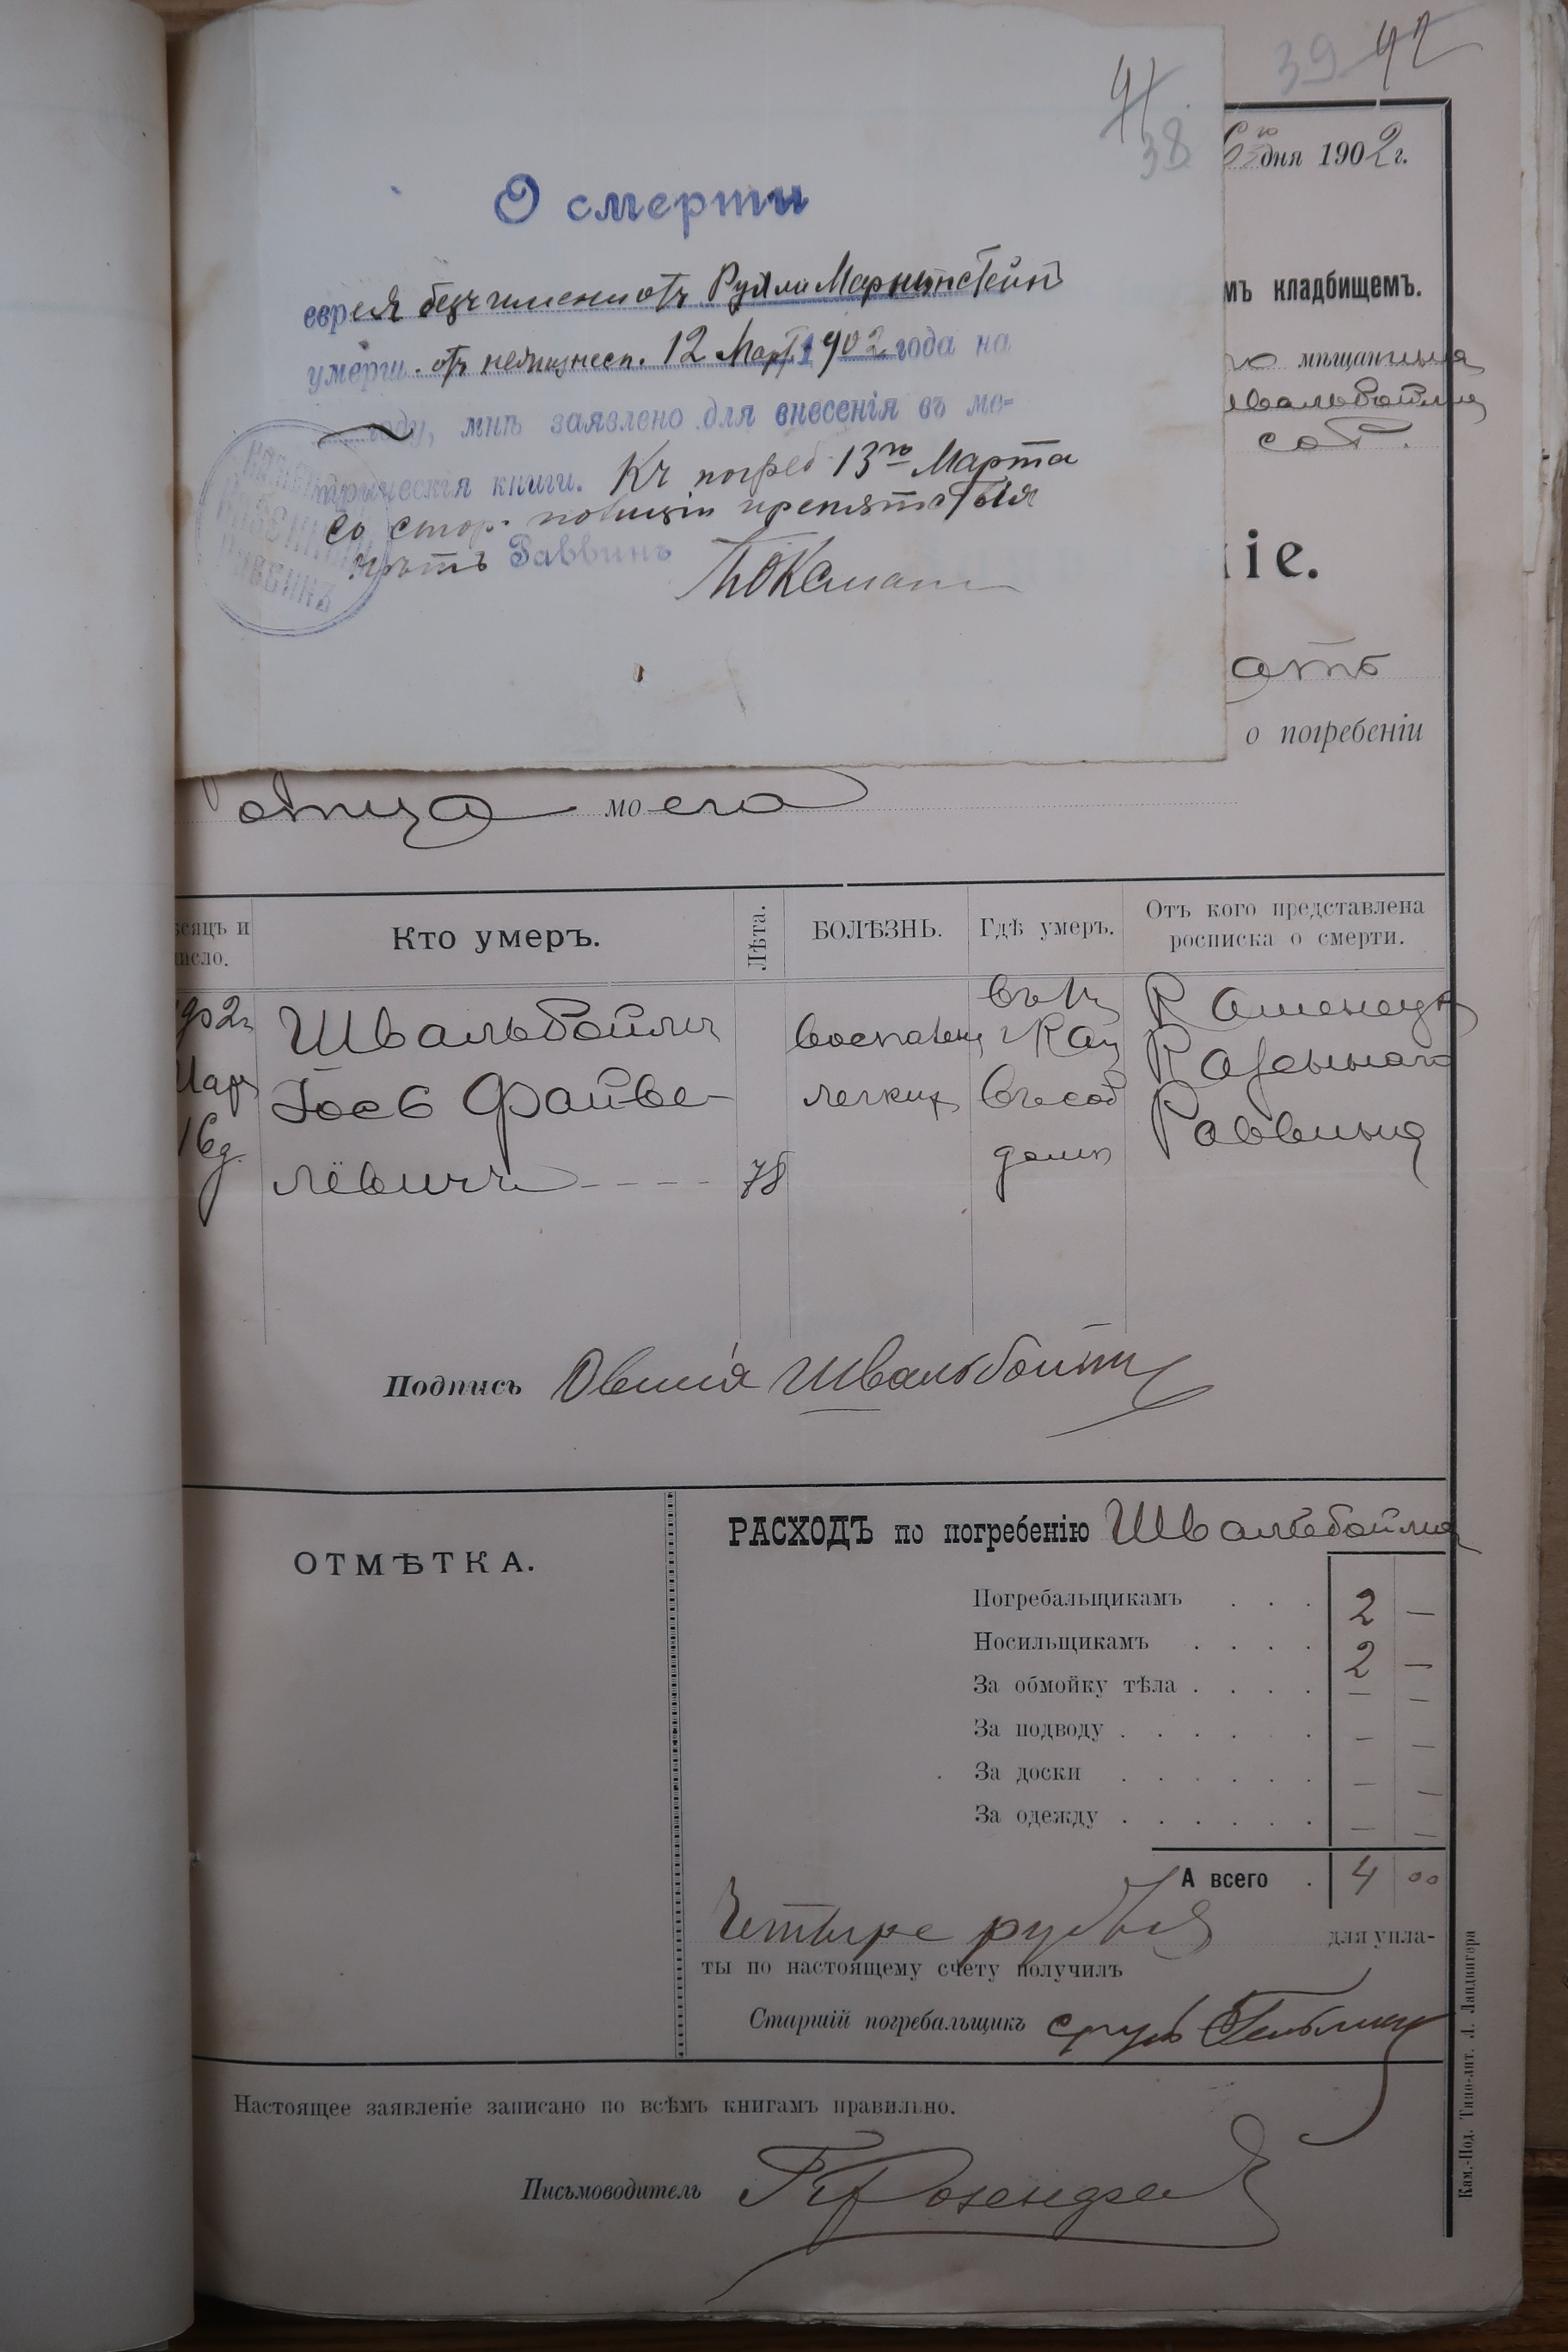 41
38
39 42
О смерти
еврея безъименнотъ Рухли Марнинстейнъ
умерш. отъ недоношен. 12 Март. 1902 года на
году, мнѣ заявлено для внесенія въ ме-
трическія книги. Къ погреб. 13го Марта
со стор. полиціи препятствія
нѣтъ Раввинъ
КАЗЕННЫЙ
РАВВИНЪ
6го дня 1902 г.
мъ кладбищемъ.
го мѣщанина
Швальбойма
іе.
о погребеніи
отца моего
сяцъ и
исло.
Кто умеръ.
Лѣта.
БОЛѢЗНЬ.
Гдѣ умеръ.
Отъ кого представлена
росписка о смерти.
902г
Мар
16 д.
Швальбоймъ
Іосъ Файве-
лёвичъ
78
воспален
легкихъ
въ г
Кам
въ соб
домѣ
Каменецк
Казеннаго
Раввина
Подпись Овшія Швальбоймъ
ОТМѢТКА.
РАСХОДЪ по погребенію Швальбойма
Погребальщикамъ . . . 2 —
Носильщикамъ . . . . 2 —
За обмойку тѣла . . . . — —
За подводу . . . . . — —
За доски . . . . . . — —
За одежду . . . . . . — —
А всего . 4 00
Четыре рубля для упла-
ты по настоящему счету получилъ
Старшій погребальщикъ
Настоящее заявленіе записано по всѣмъ книгамъ правильно.
Письмоводитель
Кам.-Под. Типо-лит. Л. Ландвигера